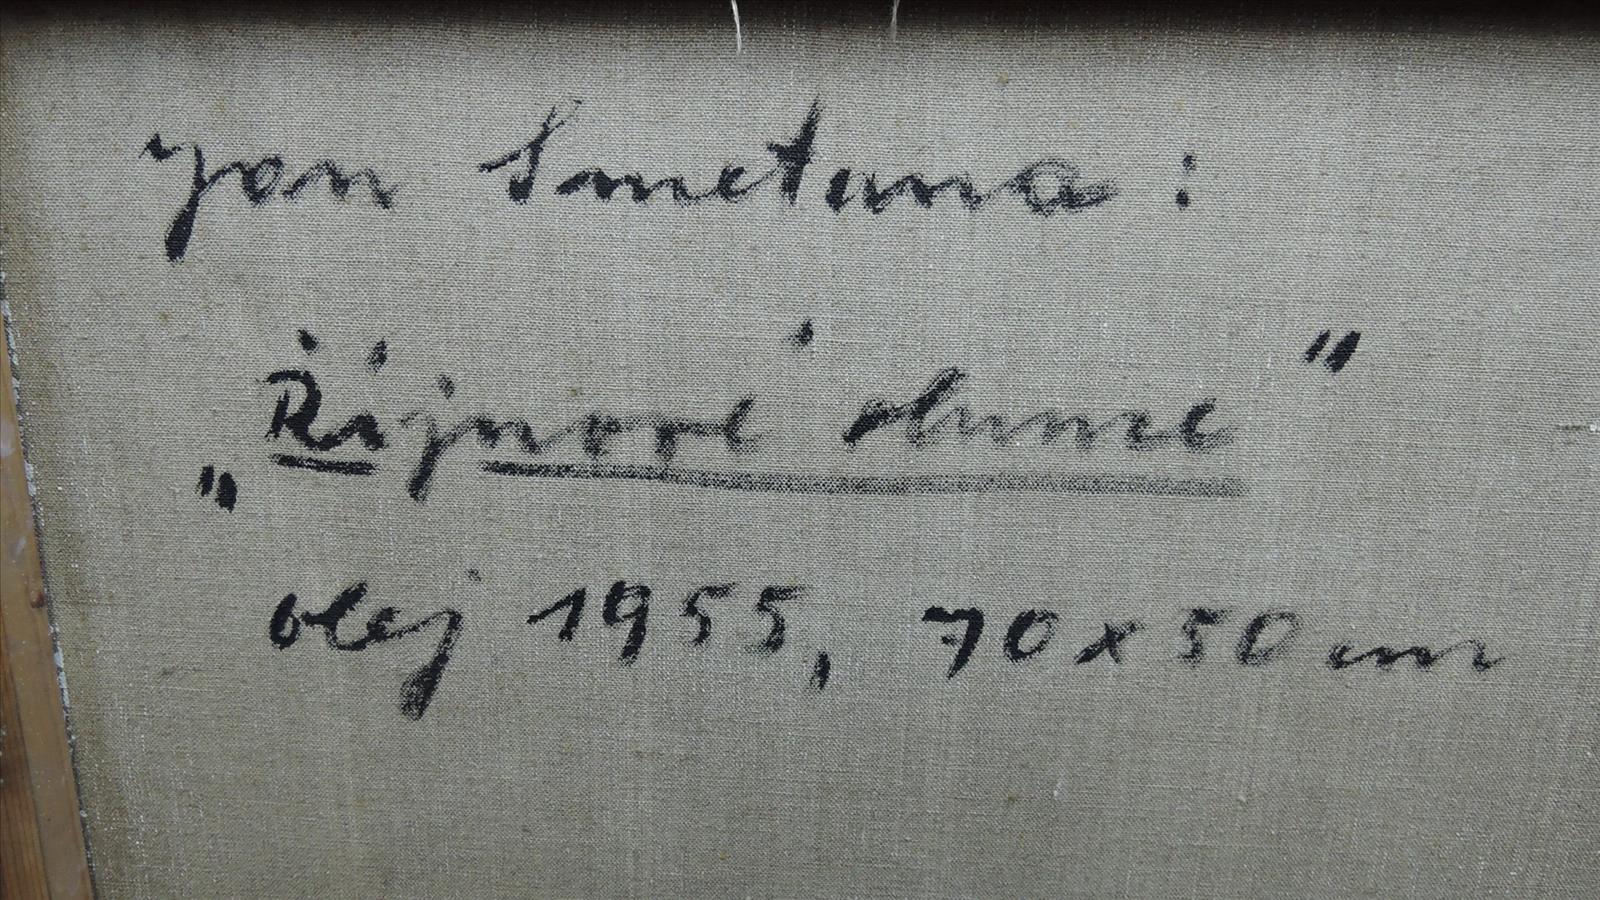 Jan Smetana:
„Říjnové slunce"
olej 1955, 70x50 cm